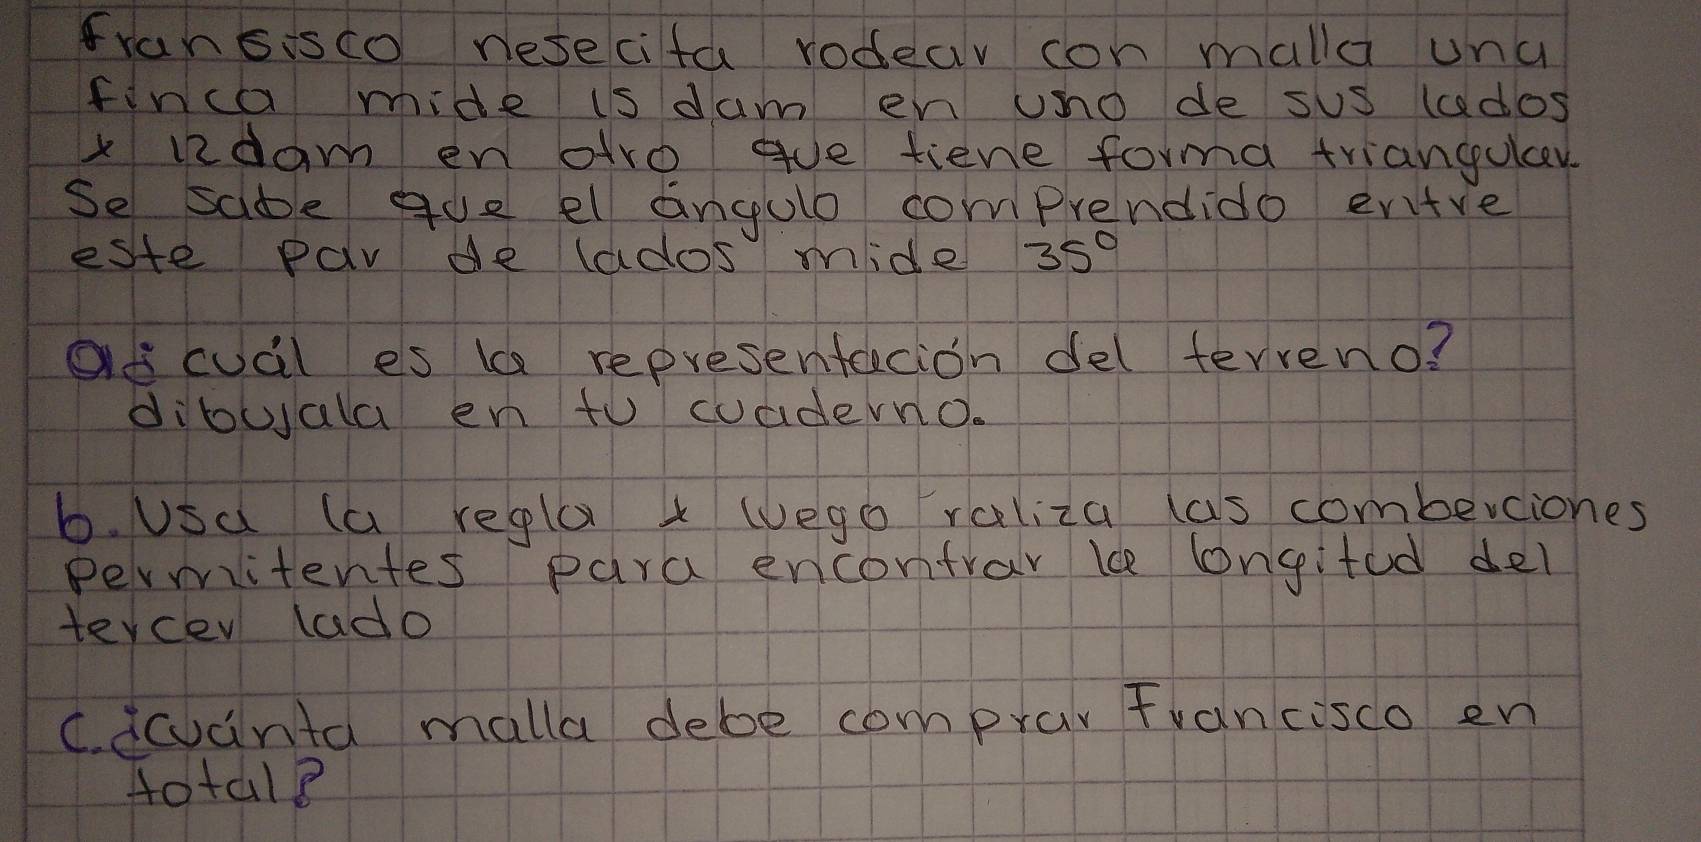 fransisco nesecita rodear con malla una
finca mide 15 dam en uno de sus lados
y 12 dam en otro que tiene forma triangular.
Se sabe que el ángulo comprendido entre
este par de lados mide 35°
a ¿ cuál es la representación del terreno?
dibujala en tu cuaderno.
b. Usa la regla y luego raliza las comberciones
permitentes para encontrar la longitud del
tercer lado
c. ¿cuánta malla debe comprar Francisco en
total?